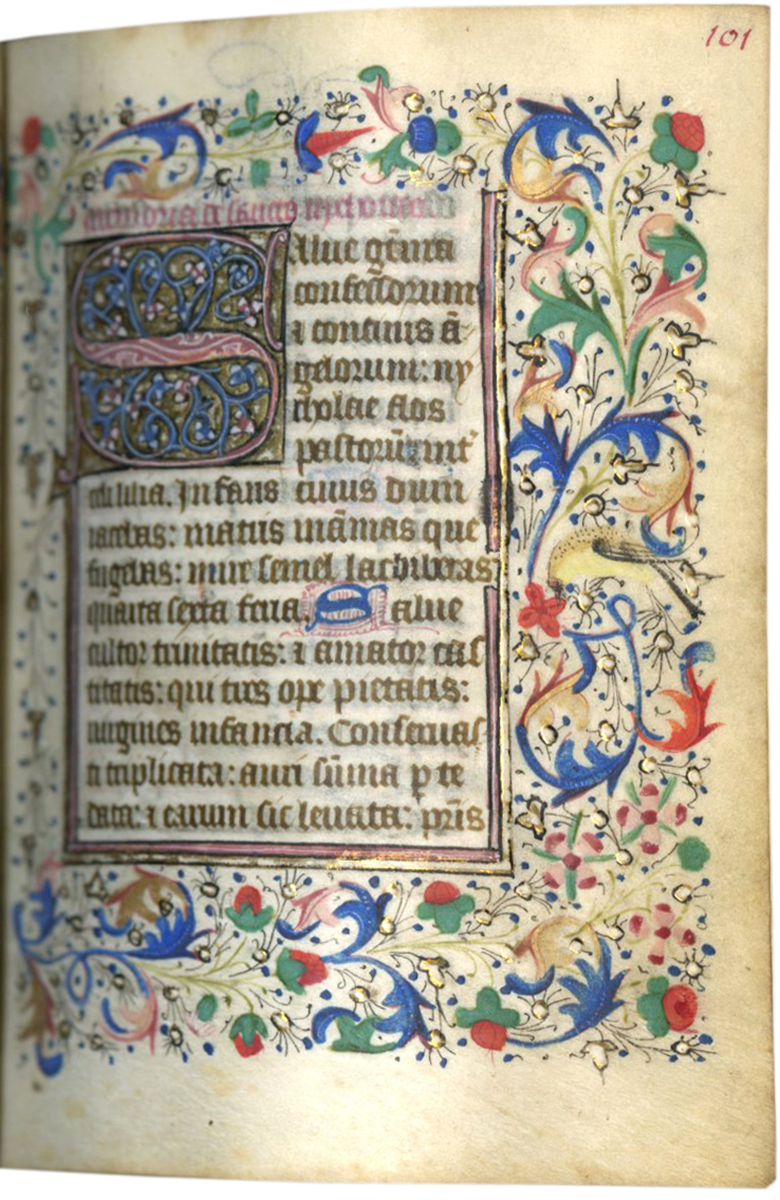 101
Salue gēma
confessorum
⁊ contimis ā
gelorum: ny
cholae flos
pastorū mt'
cu lilia. Infans cuius dum
iacebas: matris māmas que
sugebas: mire semel lac bibebas
quarta sexta feria. Salue
cultor trinitatis: ⁊ amator cas
titatis: qui tres ope pietatis:
uirgines infancia. Conseruas
ti triplicata: auri sūma p te
data: ⁊ earum sic leuata: pr̄is